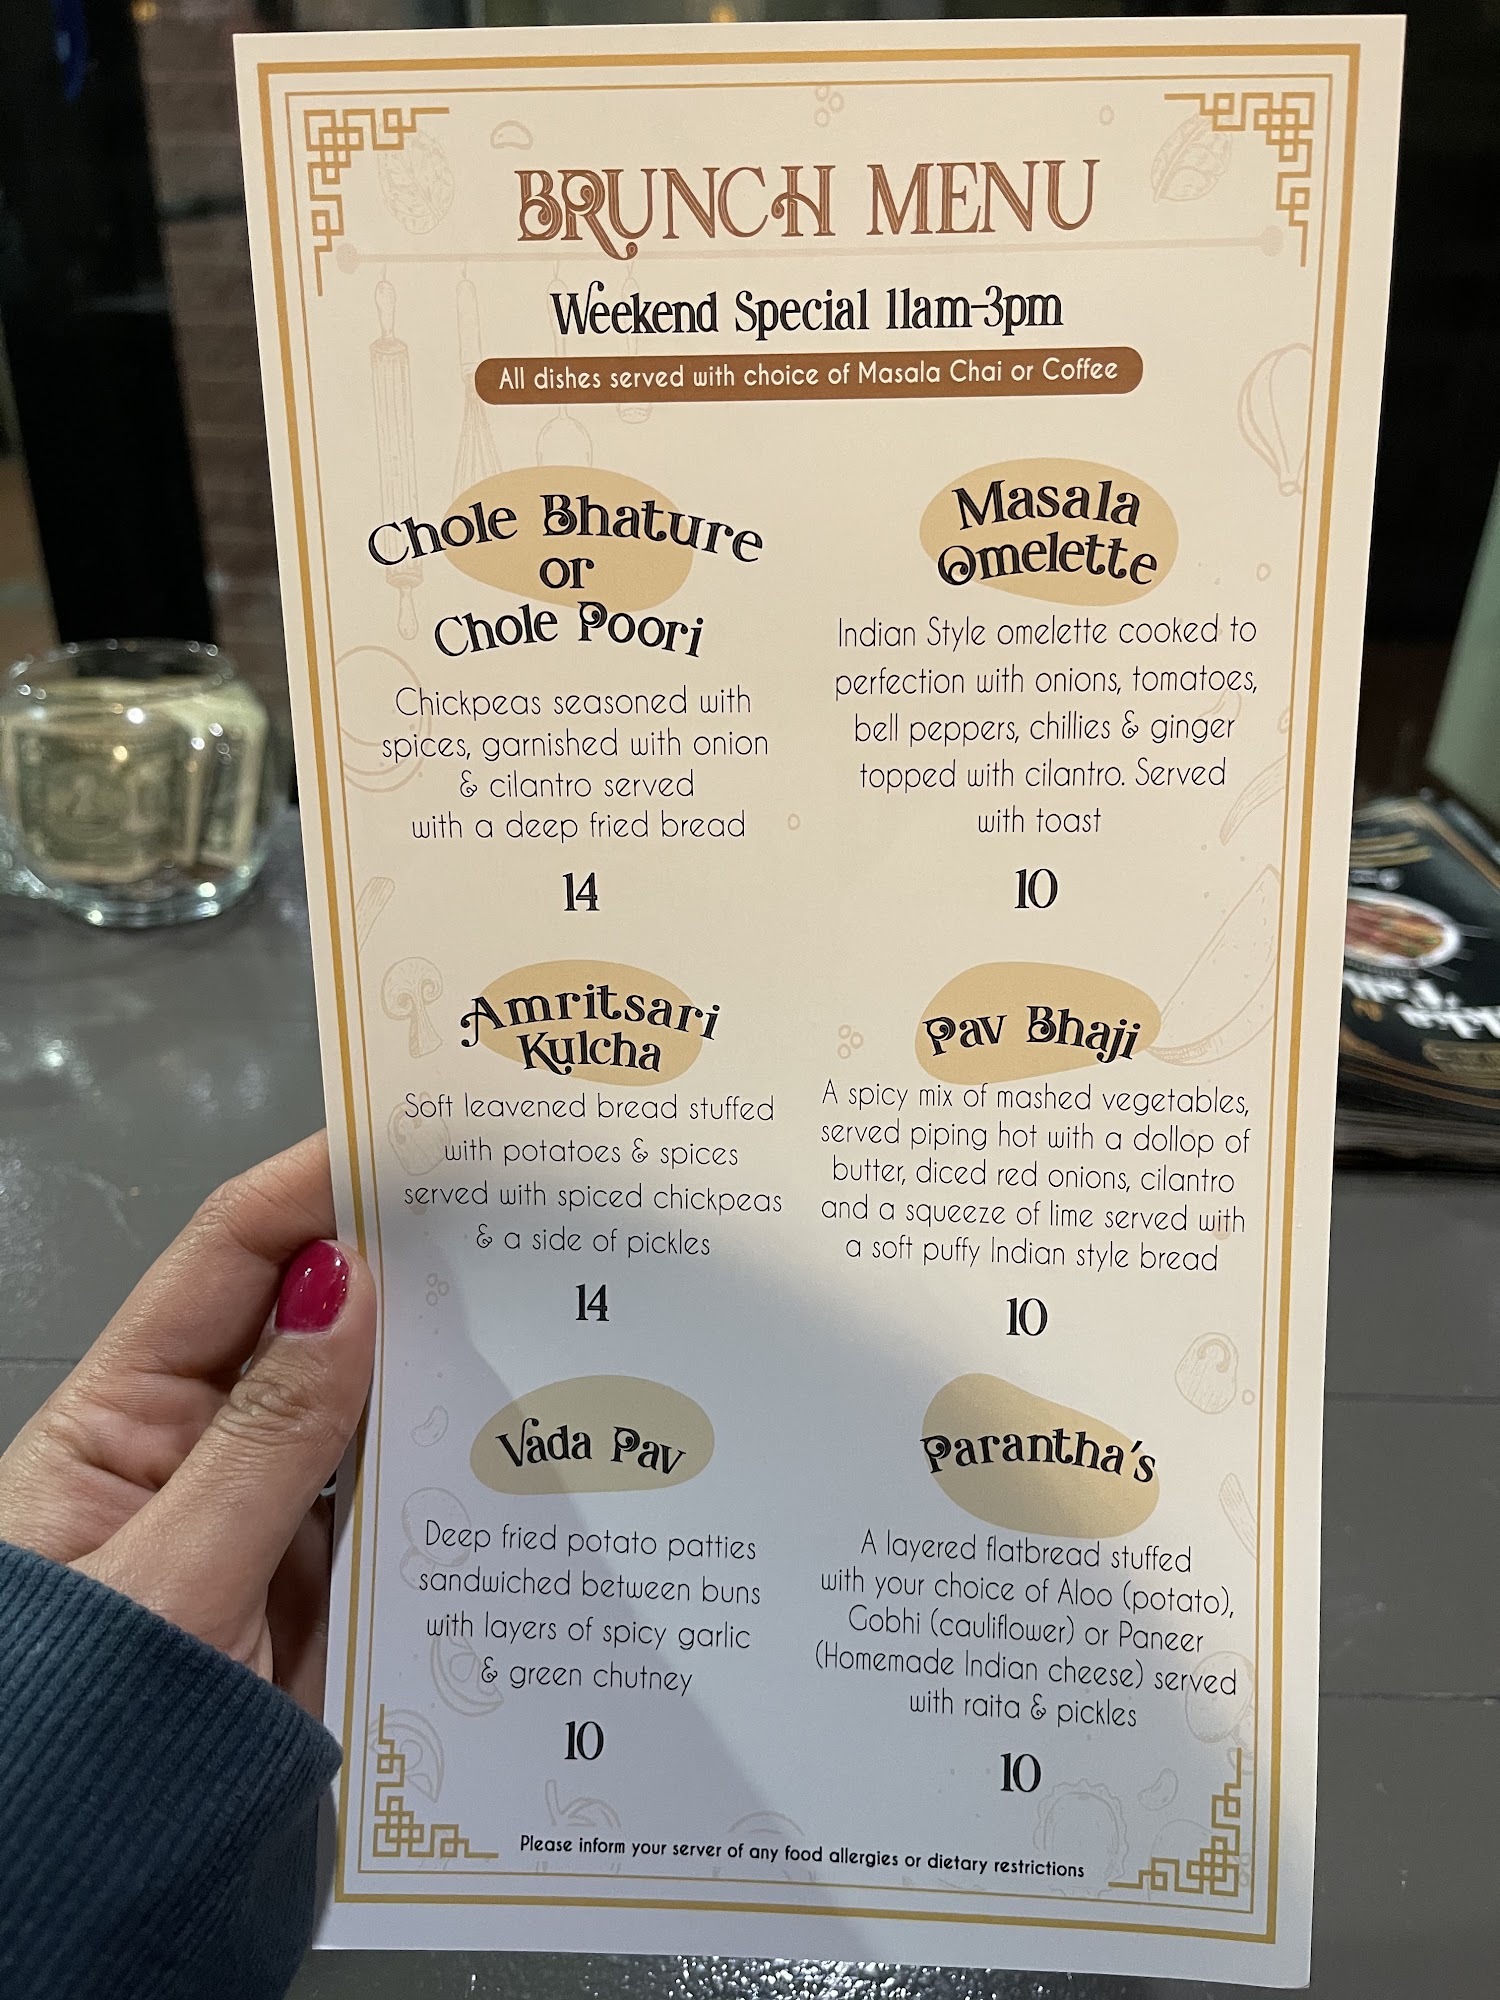 BRUNCH MENU
Weekend Special 11am-3pm
All dishes served with choice of Masala Chai or Coffee
Chole Bhature
or
Chole Poori
Chickpeas seasoned with
spices, garnished with onion
& cilantro served
with a deep fried bread
14
Masala
Omelette
Indian Style omelette cooked to
perfection with onions, tomatoes,
bell peppers, chillies & ginger
topped with cilantro. Served
with toast
10
Amritsari
Kulcha
Soft leavened bread stuffed
with potatoes & spices
served with spiced chickpeas
& a side of pickles
14
Pav Bhaji
A spicy mix of mashed vegetables,
served piping hot with a dollop of
butter, diced red onions, cilantro
and a squeeze of lime served with
a soft puffy Indian style bread
10
Vada Pav
Deep fried potato patties
sandwiched between buns
with layers of spicy garlic
& green chutney
10
Parantha's
A layered flatbread stuffed
with your choice of Aloo (potato),
Gobhi (cauliflower) or Paneer
(Homemade Indian cheese) served
with raita & pickles
10
Please inform your server of any food allergies or dietary restrictions